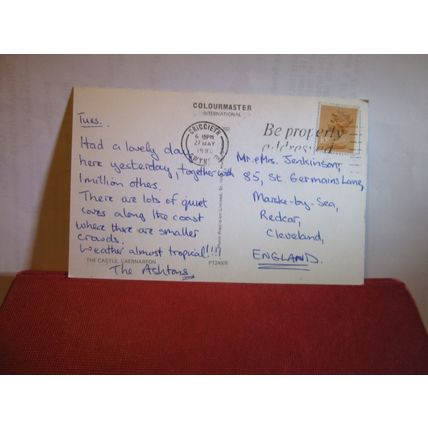 COLOURMASTER
INTERNATIONAL
Tues.
Had a lovely day
here yesterday, together with
1 million others.
There are lots of quiet
coves along the coast
where there are smaller
crowds.
Weather almost tropical!!!
The Ashtons
THE CASTLE, CAERNARFON
PT24605
CRICCIETH
6 15PM
27 MAY
GWYNEDD
Be properly
addressed
Mr. & Mrs. Jenkinson,
85, St. Germains Lane,
Marske-by-Sea,
Redcar,
Cleveland,
ENGLAND.